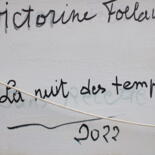 ictorine Follana
La nuit des temp
2022